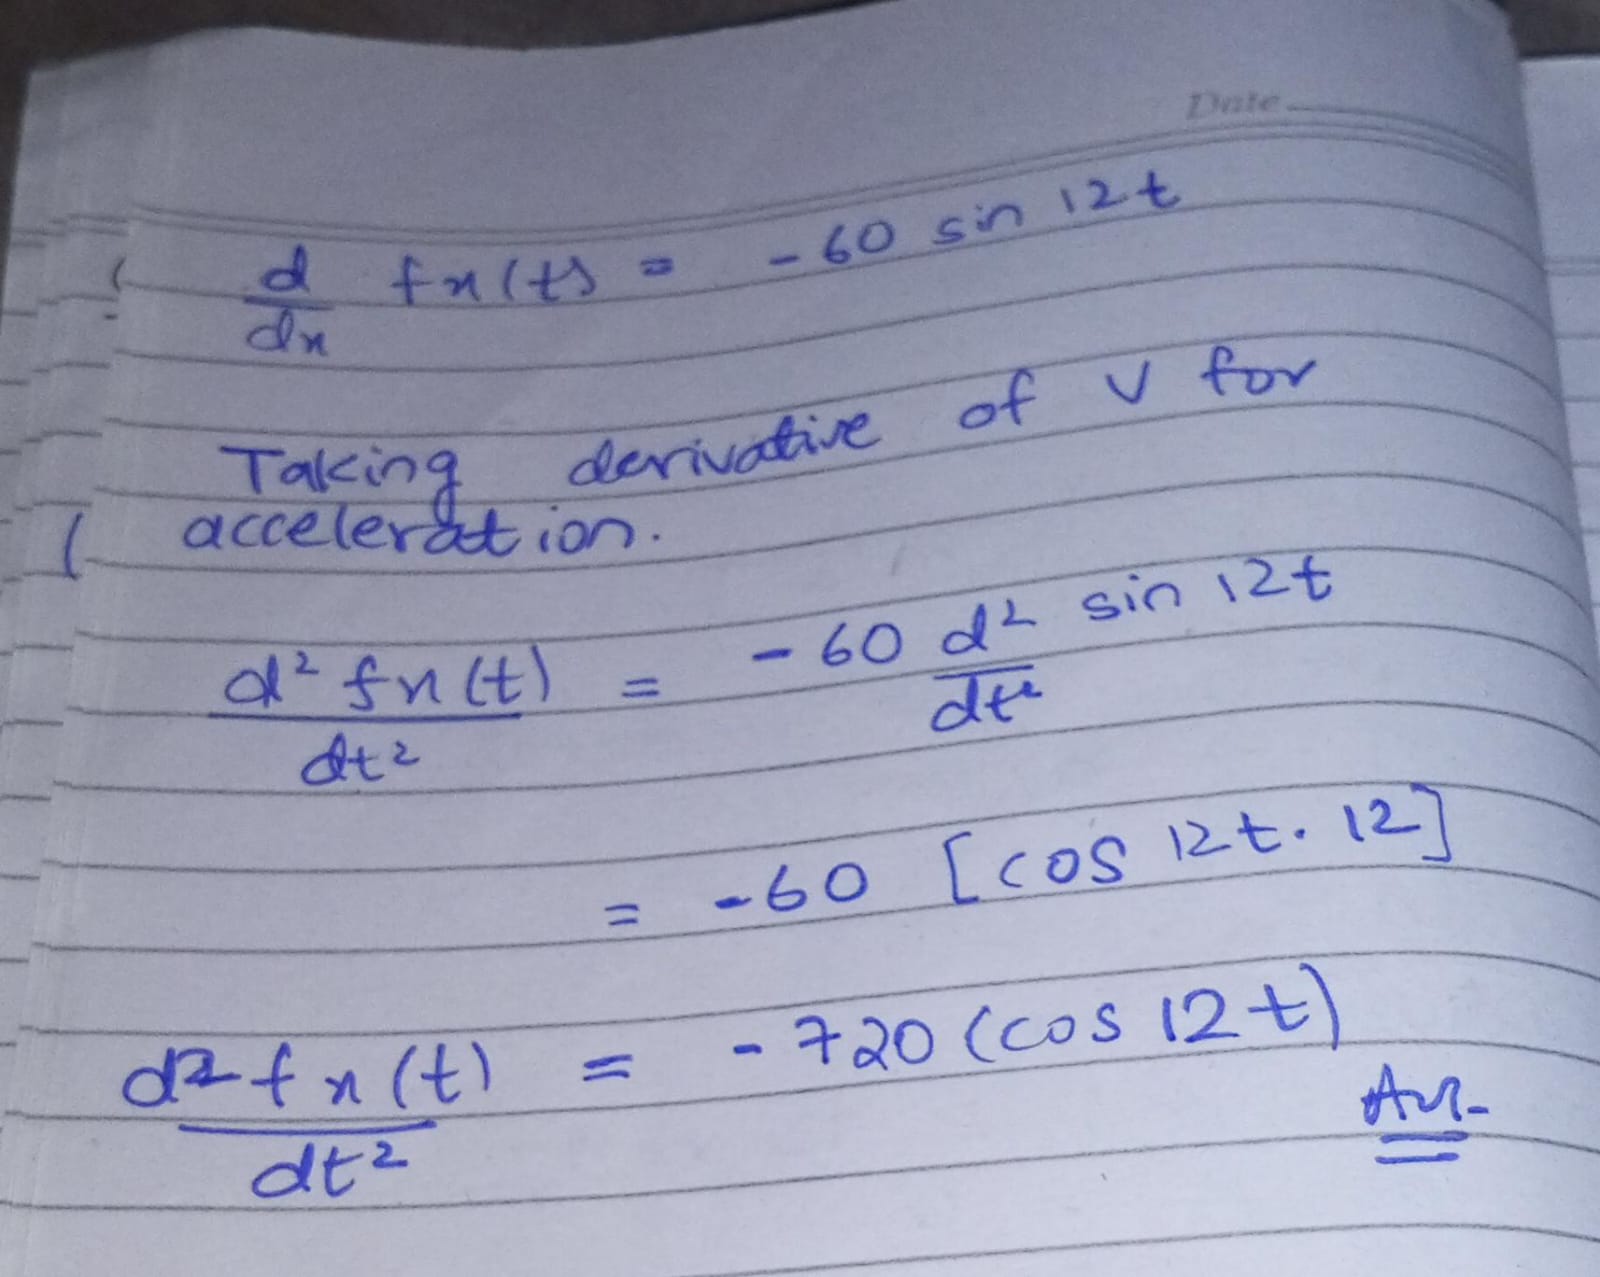 Date
d/dx fx(t) = -60 sin 12t
Taking derivative of v for
acceleration.
d² fx(t)/dt² = -60 d²/dt² sin 12t
= -60 [cos 12t. 12]
d² fx(t)/dt² = -720 (cos 12t)
Ans-